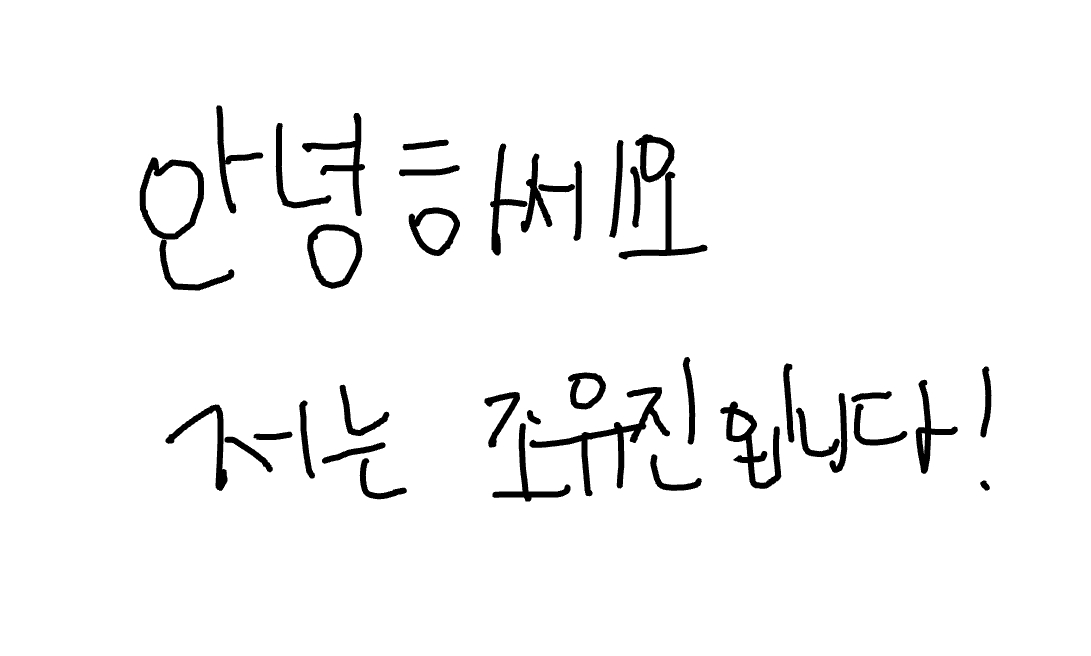 안녕하세요
저는 조유진입니다!